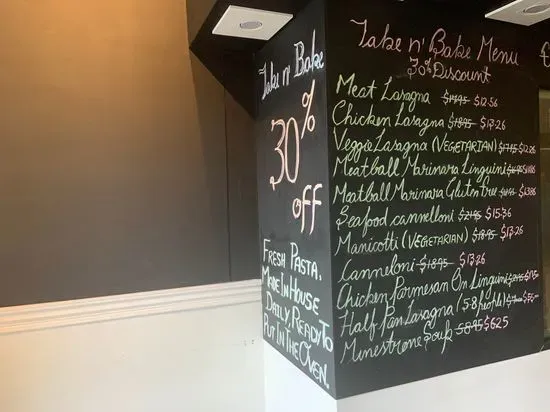 Take n' Bake
30%
off
FRESH PASTA.
MADE IN HOUSE
DAILY READY TO
PUT IN THE OVEN.
Take n' Bake Menu
30% Discount
Meat Lasagna $17.95 $12.56
Chicken Lasagna $18.95 $13.26
Veggie Lasagna (VEGETARIAN) $17.95 $12.56
Meatball Marinara Linguini
Meatball Marinara Gluten Free
Seafood cannelloni $21.95 $15.36
Manicotti (VEGETARIAN) $18.95 $13.26
Canneloni $18.95 $13.26
Chicken Parmesan On Linguini
Half Pan Lasagna (5-8 people)
Minestrone Soup $8.95 $6.25